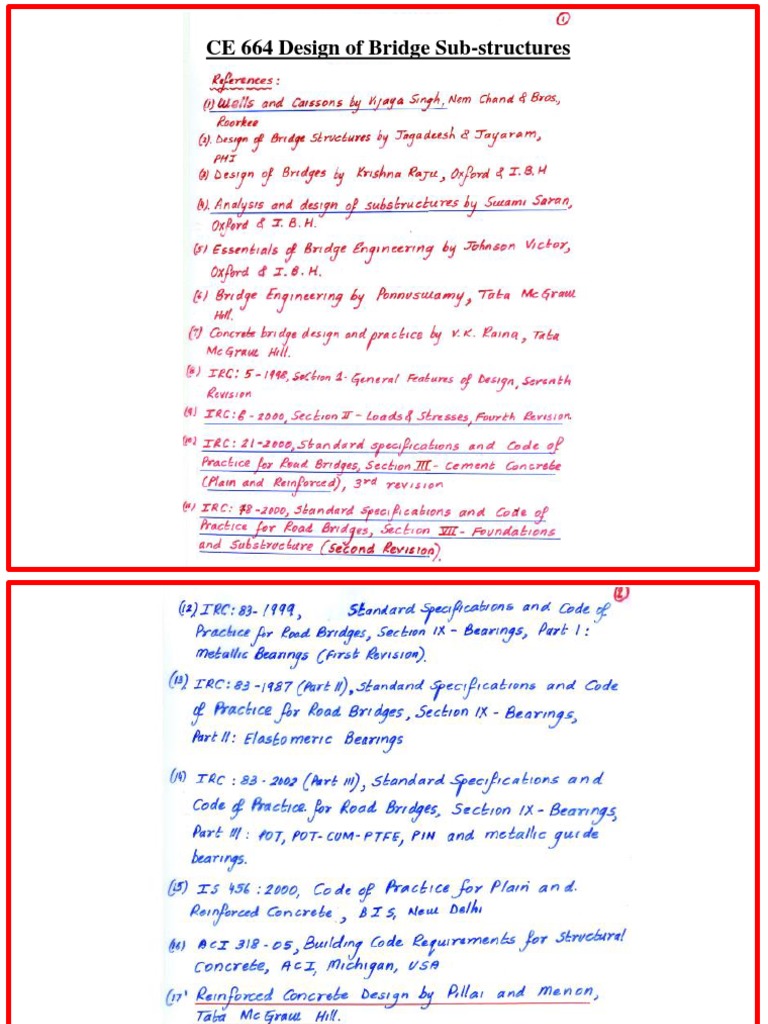 ①
CE 664 Design of Bridge Sub-structures
References:
(1) Wells and Caissons by Vijaya Singh, Nem Chand & Bros.,
Roorkee
(2). Design of Bridge Structures by Jagadeesh & Jayaram,
PHI
(3) Design of Bridges by Krishna Raju, Oxford & I.B.H
(4). Analysis and design of substructures by Swami Saran,
Oxford & I.B.H.
(5) Essentials of Bridge Engineering by Johnson Victor,
Oxford & I.B.H.
(6) Bridge Engineering by Ponnuswamy, Tata McGraw
Hill.
(7) Concrete bridge design and practice by V.K. Raina, Tata
McGraw Hill.
(8) IRC: 5-1998, Section 1. General Features of Design, Seventh
Revision
(9) IRC:6-2000, Section II - Loads & Stresses, Fourth Revision.
(10) IRC: 21-2000, Standard specifications and Code of
Practice for Road Bridges, Section III - Cement Concrete
(Plain and Reinforced), 3rd revision
(11) IRC: 78-2000, Standard Specifications and Code of
Practice for Road Bridges, Section VII - Foundations
and Substructure (Second Revision).
②
(12) IRC: 83-1999, Standard Specifications and Code of
Practice for Road Bridges, Section IX - Bearings, Part I:
Metallic Bearings (First Revision).
(13) IRC: 83-1987 (Part II), Standard Specifications and Code
of Practice for Road Bridges, Section IX - Bearings,
Part II: Elastomeric Bearings
(14) IRC: 83-2002 (Part III), Standard Specifications and
Code of Practice for Road Bridges, Section IX - Bearings,
Part III: POT, POT-CUM-PTFE, PIN and metallic guide
bearings.
(15) IS 456: 2000, Code of Practice for Plain and
Reinforced Concrete, BIS, New Delhi
(16) ACI 318-05, Building Code Requirements for Structural
Concrete, ACI, Michigan, USA
(17) Reinforced Concrete Design by Pillai and Menon,
Tata McGraw Hill.